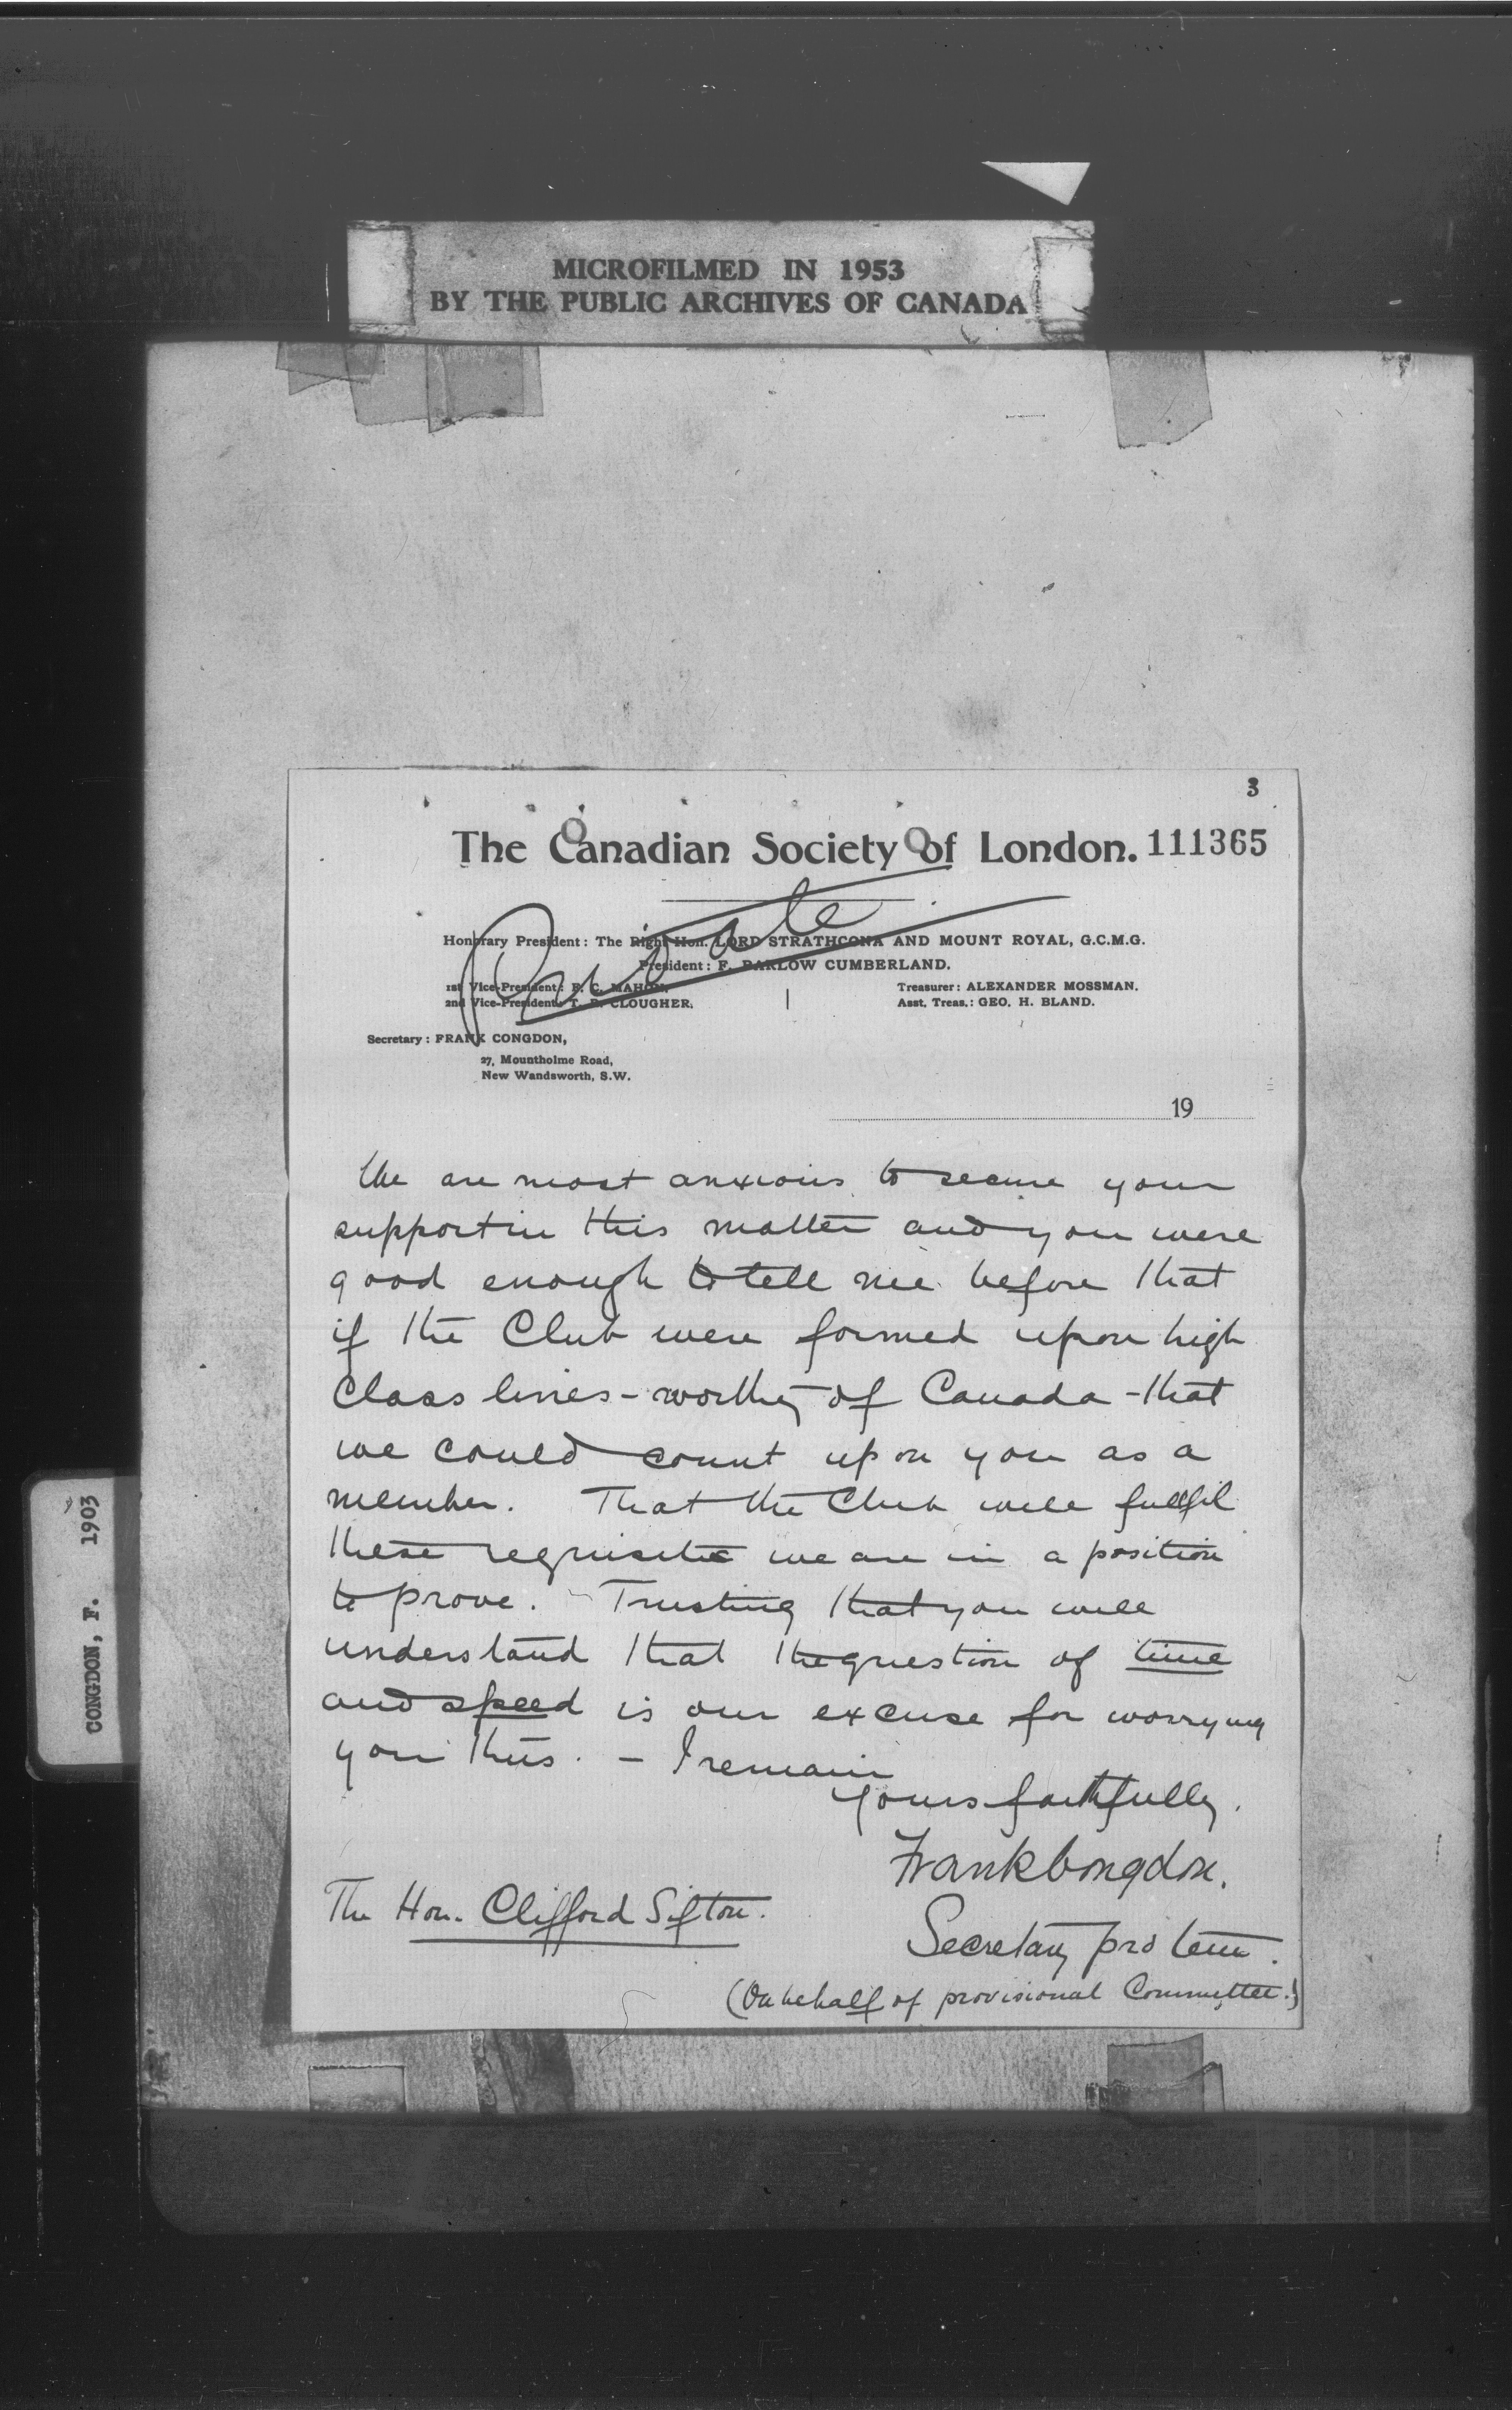 MICROFILMED IN 1953
BY THE PUBLIC ARCHIVES OF CANADA
3
The Canadian Society of London. 111365
Private
Honorary President: The Right Hon. LORD STRATHCONA AND MOUNT ROYAL, G.C.M.G.
President: F. BARLOW CUMBERLAND.
1st Vice-President: F. C. MAHON.
2nd Vice-President: T. R. CLOUGHER.
Treasurer: ALEXANDER MOSSMAN.
Asst. Treas.: GEO. H. BLAND.
Secretary: FRANK CONGDON,
27, Mountholme Road,
New Wandsworth, S.W.
19
We are most anxious to secure your
support in this matter and you were
good enough to tell me before that
if the Club were formed upon high
class lines - worthy of Canada - that
we could count upon you as a
member. That the Club will fullfil
these requisites we are in a position
to prove. Trusting that you will
understand that the question of time
and speed is our excuse for worrying
you thus. - I remain
Yours faithfully.
Frank Congdon.
The Hon. Clifford Sifton.
Secretary pro tem.
(On behalf of provisional Committee.)
CONGDON, F. 1903